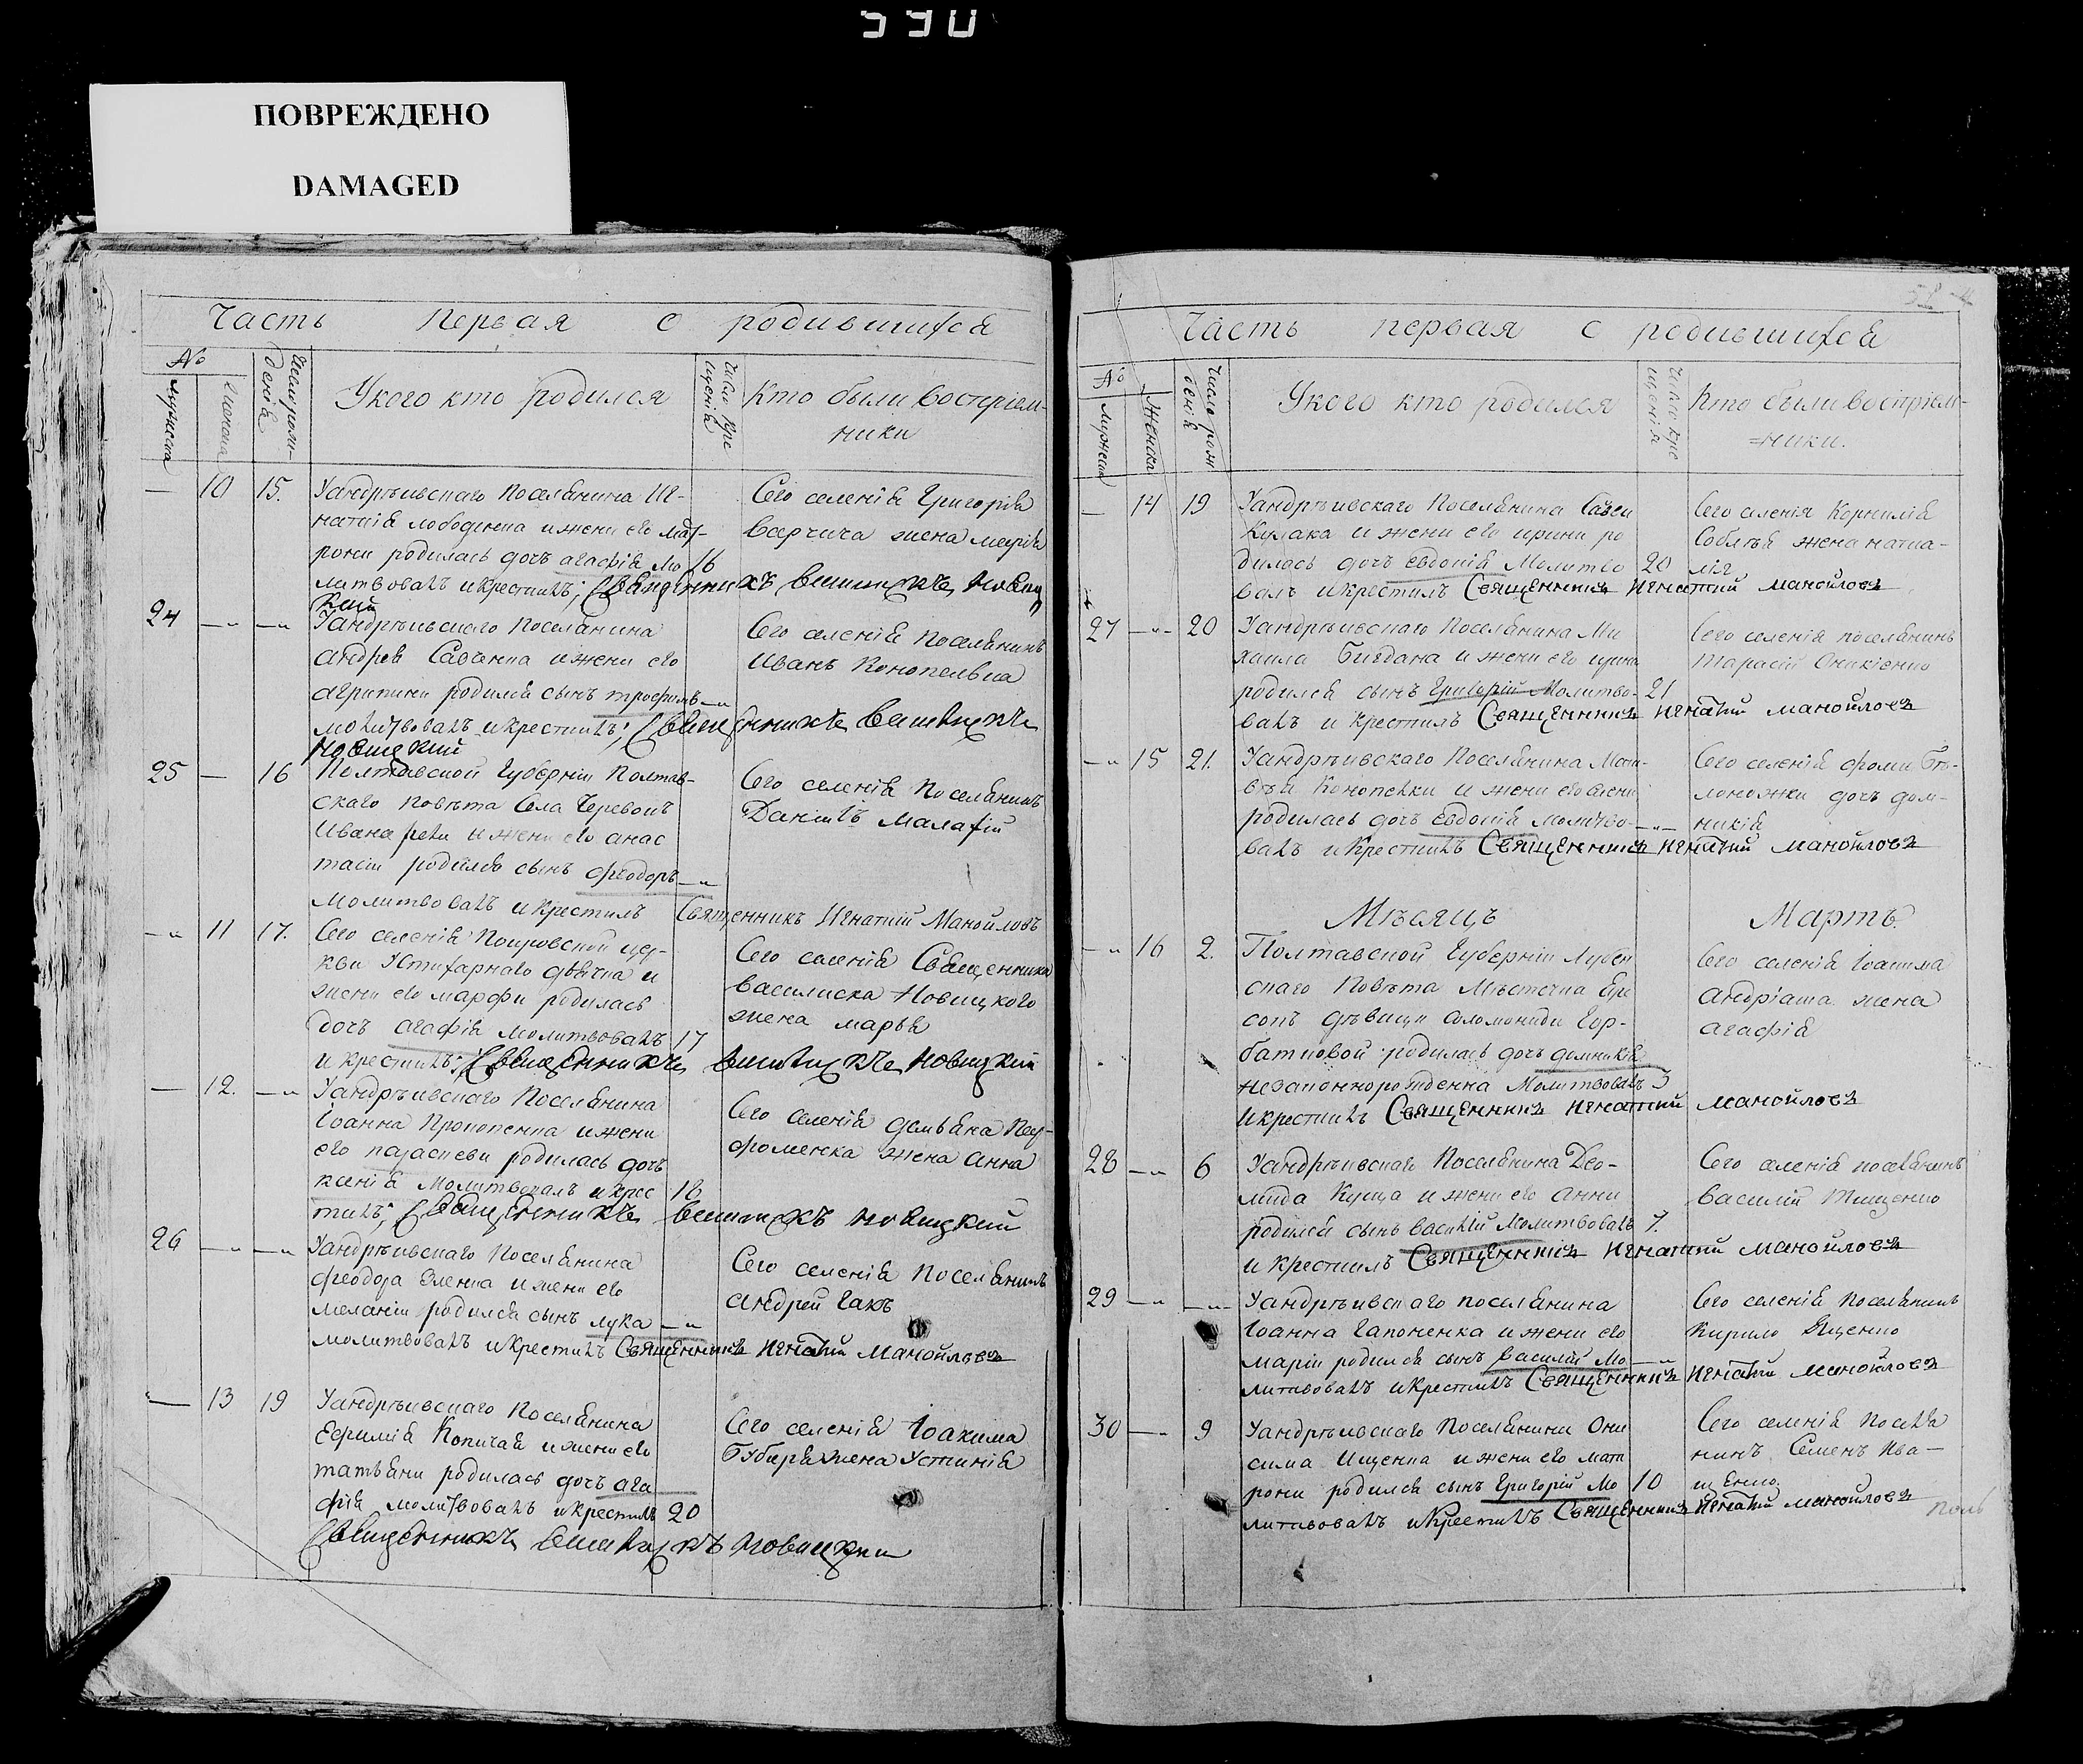 590
ПОВРЕЖДЕНО
DAMAGED
Часть Первая о родившихся
№
мужеска
женска
Число рож-
денія
У кого кто родился
Число кре
щенія
Кто были восприем-
ники
— 10 15. Уандрѣивскаго Поселянина Иг-
натія лободенка и жени его мат-
рони родилась дочъ агафія Мо 16
литвовалъ и крестилъ; Священникъ василискъ Новиц
кий
Сего селенія Григорія
варчича жена марія
24 —„— —„ Уандрѣивского Поселянина
андрея Савченка и жени его
агрипини родился сынъ трофимъ —„
молитвовалъ и крестилъ; Священникъ василискъ
Новицкий
Сего селенія поселянинъ
Иванъ Конопелвка
25 — 16 Полтавской Губерніи Полтав-
скаго повѣта Села Черевокъ
Ивана рети и жени его анас
тасіи родился сынъ феодоръ —„
молитвовалъ и крестилъ Священникъ Игнатий Манойловъ
Сего селенія Поселянинъ
Даніилъ Малахій
—„ 11 17. Сего селенія Покровской цер-
кви Ктитарного дячка и
жени его марфи родилась
дочъ агафія молитвовалъ 17
и крестилъ; Священникъ василискъ новицкий
Сего селенія Священника
василиска Новицкого
жена марья
— 12. —„ Уандрѣивскаго Поселянина
Іоанна Прокопенка и жени
его параскеви родилась дочъ
ксенія молитвовалъ и крес 18
тилъ; Священникъ василискъ новицкий
Сего селенія демьяна Пар-
фоменка жена Анна
26 —„— —„ Уандрѣивскаго Поселянина
феодора Зленка и жени его
меланіи родился сынъ лука —„
молитвовалъ и крестилъ Священникъ Игнатий Манойловъ
Сего селенія Поселянинъ
андрей Гакъ
— 13 19 Уандрѣивскаго Поселянина
Ефимія Копичая и жени его
татьяни родилась дочъ ага
фія молитвовалъ и крестилъ 20
Священникъ василискъ новицкий
Сего селенія Іоакима
Губиря жена Устинія
Часть первая о родившихся
№
мужеска
Женска
Число рож
денія
У кого кто родился
Число кре
щенія
Кто были восприем-
=ники.
— 14 19 Уандрѣивскаго Поселянина Савви
Кулака и жени его ирини ро
дилась дочъ евдокія Молитво 20
валъ и крестилъ Священникъ Игнатий Манойловъ
Сего селенія Корнилія
Соблѣя жена ната-
лія
27 —„— 20 Уандрѣивскаго Поселянина Ми
хаила Бигдана и жени его ирини
родился сынъ Григорій Молитво- 21
валъ и крестилъ Священникъ Игнатий Манойловъ
Сего селенія поселянинъ
Тарасій Оникіенко
—„ 15 21. Уандрѣивскаго Поселянина Мат-
вѣя Конопелки и жени его
родилась дочъ евдокія молитво- —„—
валъ и крестилъ Священникъ Игнатий Манойловъ
Сего селенія фоми Бѣ-
лоножки дочъ дом-
никія
Мѣсяцъ Мартъ.
—„ 16 2. Полтавской Губерніи Лубен
скаго Повѣта Мѣстечка Ере
сокъ дѣвици соломониди Гор-
батковой родилась дочъ домникія
незаконнорожденна Молитвовалъ 3
и крестилъ Священникъ Игнатий Манойловъ
Сего селенія Іоакима
андріаша жена
агафія
28 —„ 6 Уандрѣивскаго Поселянина Део-
мида Куща и жени его Анни
родился сынъ василій Молитвовалъ 7.
и крестилъ Священникъ Игнатий Манойловъ
Сего селенія поселянинъ
василій Тищенко
29 —„ —„— Уандрѣивскаго поселянина
Іоанна Гапоненка и жени его
маріи родился сынъ василій Мо- —„
литвовалъ и крестилъ Священникъ Игнатий Манойловъ
Сего селенія Поселянинъ
Кирило Яценко
30 —„ 9 Уандрѣивскаго Поселянина Они
сима Ищенка и жени его мат
рони родился сынъ Григорій Мо 10
литвовалъ и крестилъ Священникъ Игнатий Манойловъ
Сего селенія Поселя
нинъ Семенъ Ива-
щенко